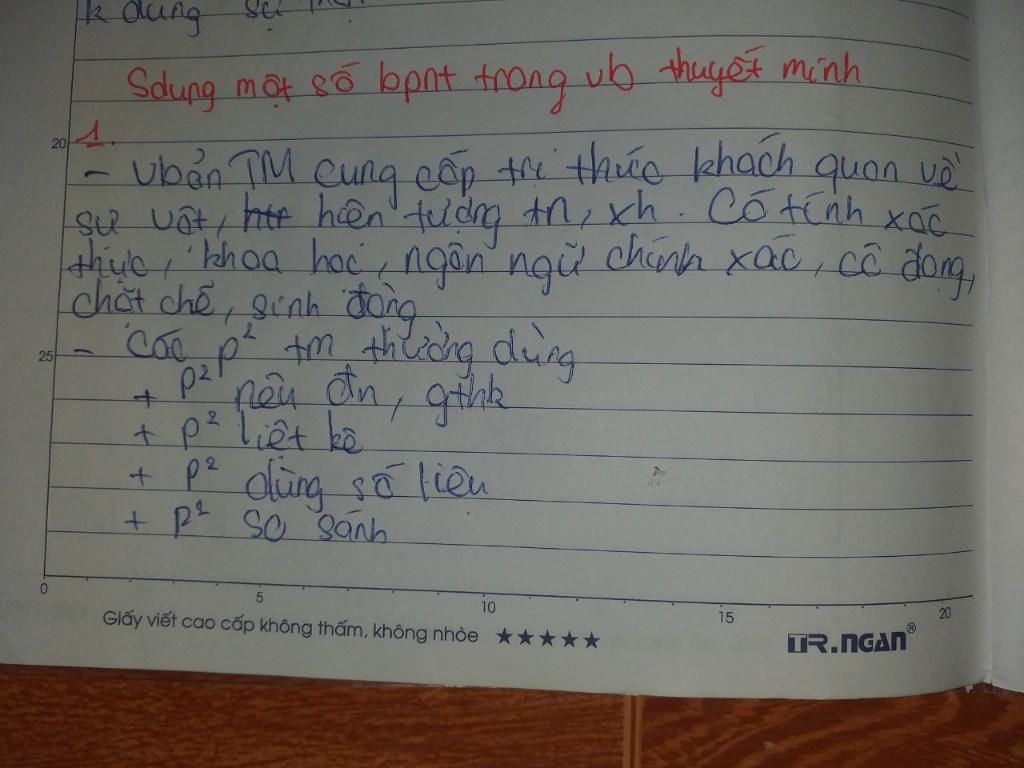 k dung sự
Sdung một số bpnt trong vb thuyết minh
20
1.
- Vbản TM cung cấp tri thức khách quan về
sự vật, hiện tượng tn, xh. Có tính xác
thực, khoa học, ngôn ngữ chính xác, cô đọng,
chặt chẽ, sinh động
25
- Các p² tm thường dùng
+ p² nêu đn, gthk
+ p² liệt kê
+ p² dùng số liệu
+ p² so sánh
0 5 10 15 20
Giấy viết cao cấp không thấm, không nhòe ★★★★★
TR.NGAN®